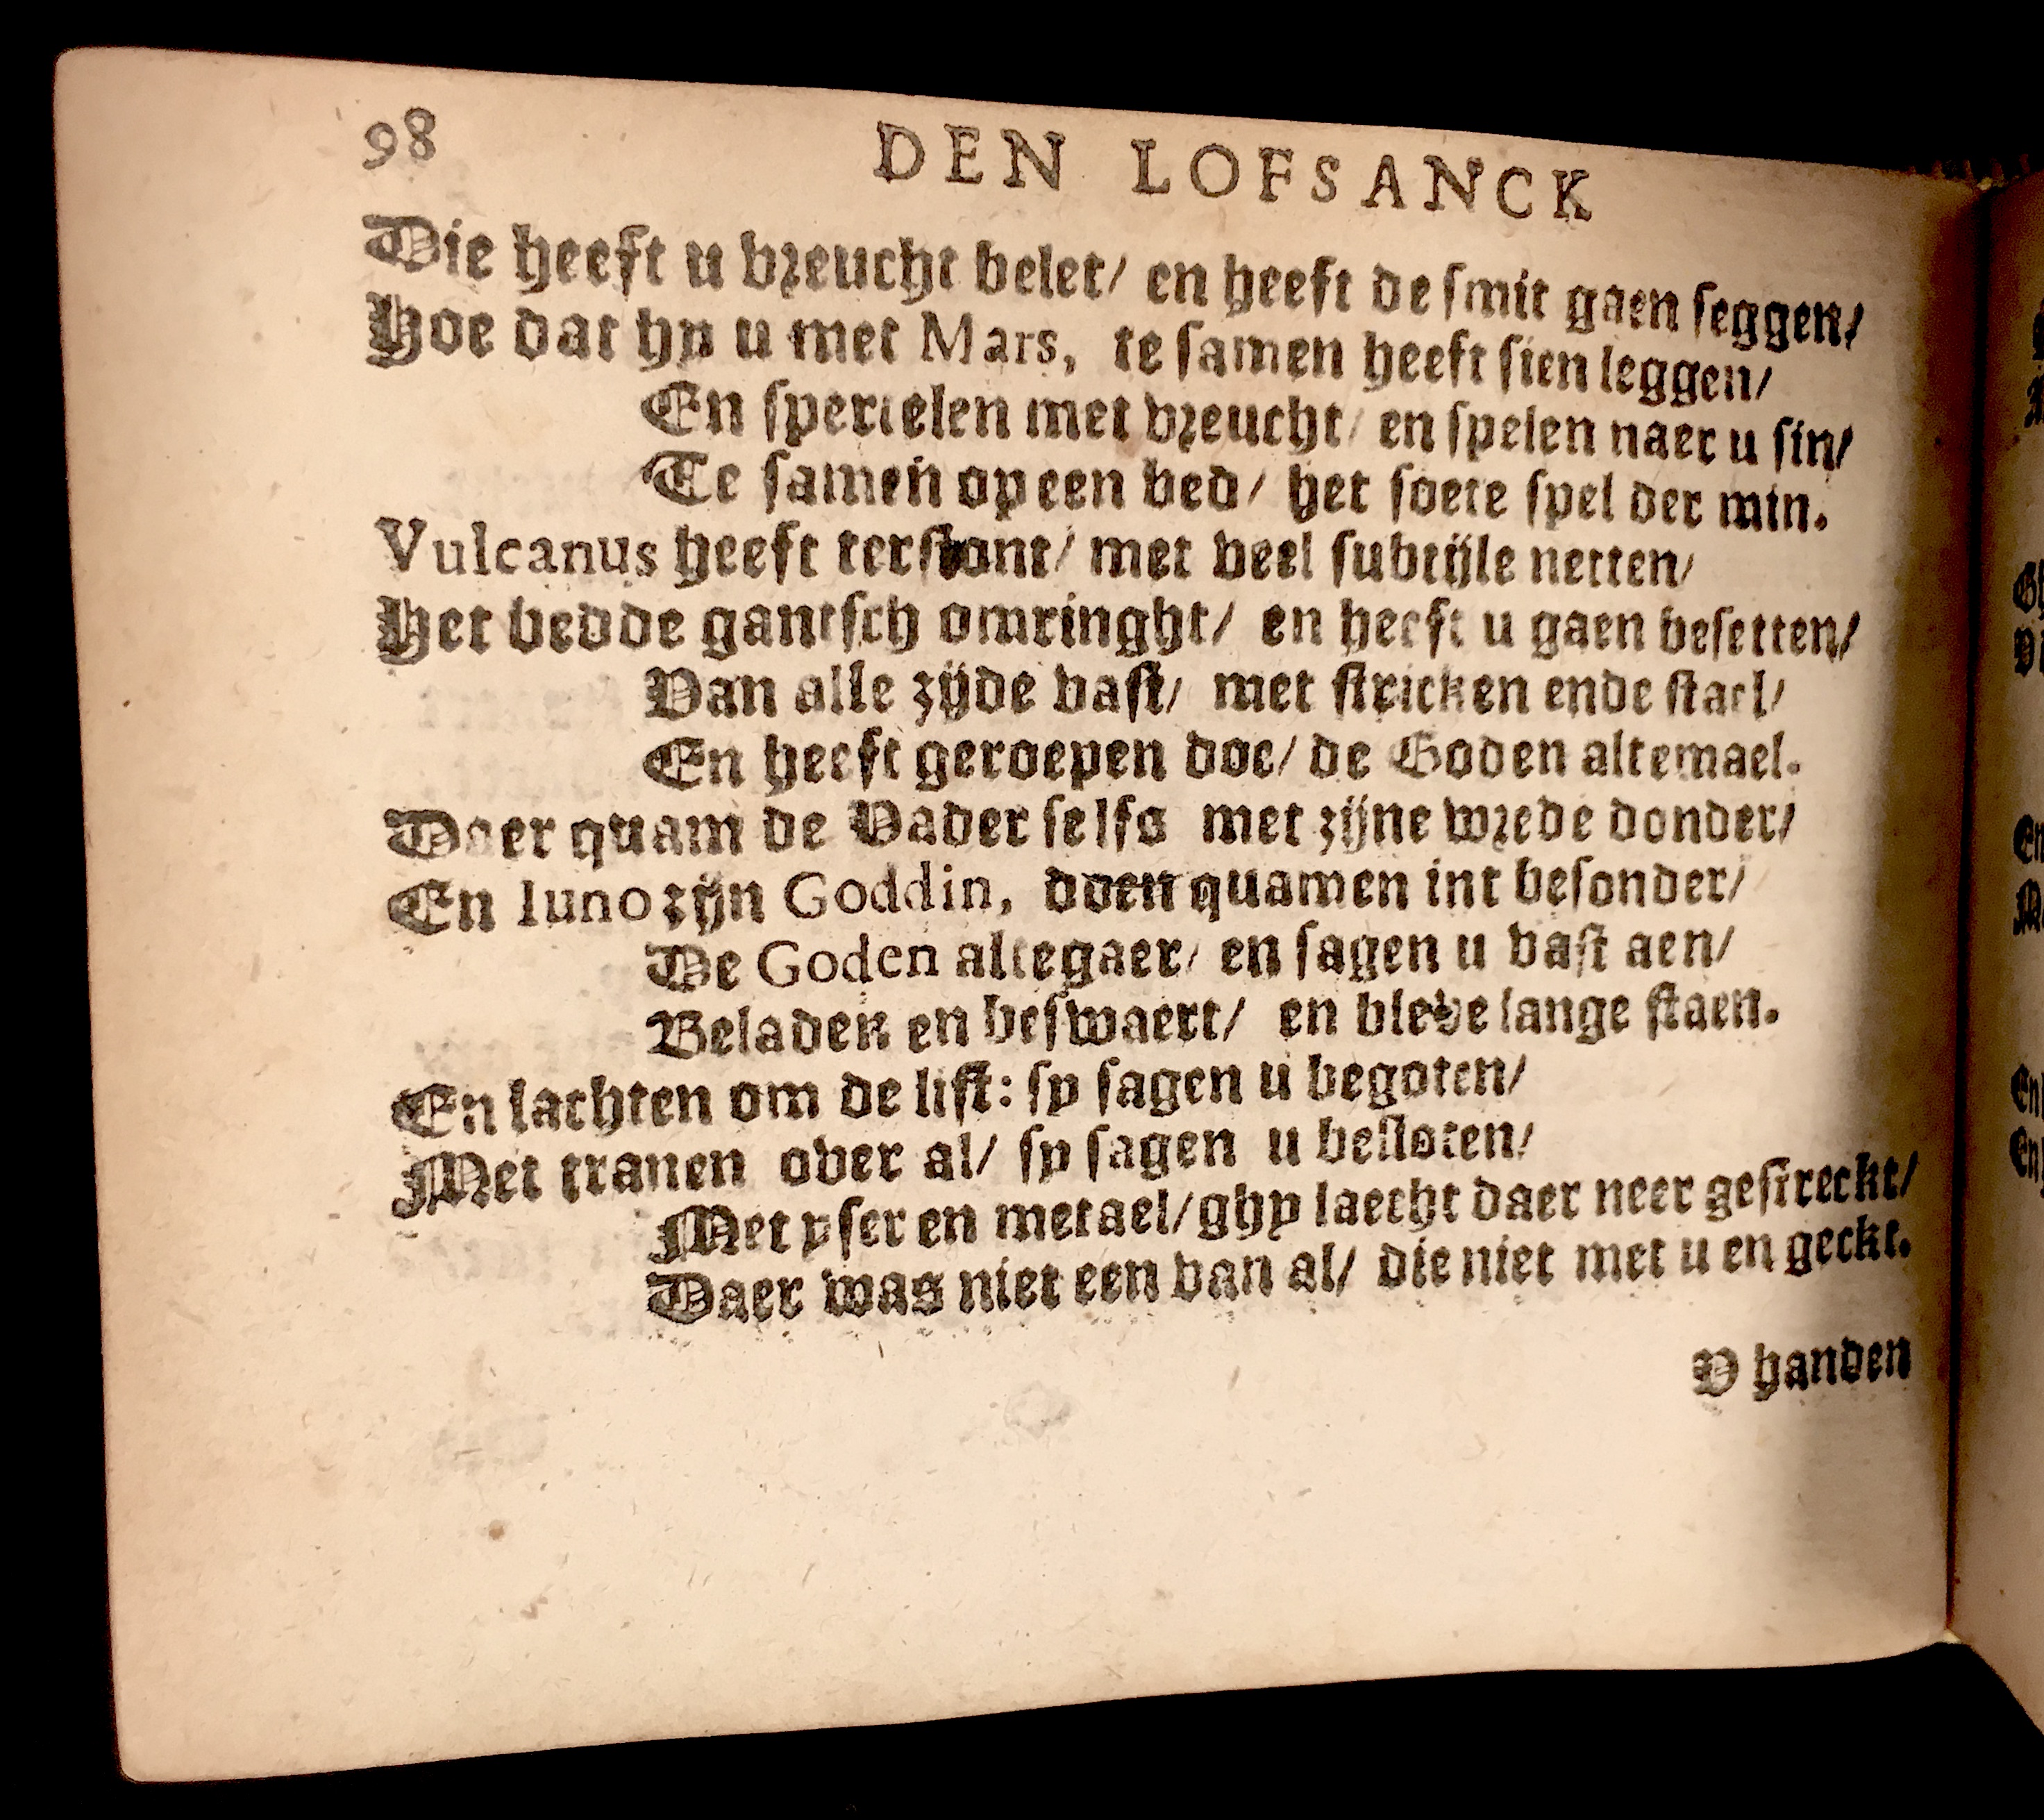 98 DEN LOFSANCK
Die heeft u vreucht belet/ en heeft de smit gaen seggen/
Hoe dat hy u met Mars, te samen heeft sien leggen/
En spertelen met vreucht/ en spelen naer u sin/
Te samen op een bed/ het soete spel der min.
Vulcanus heeft terstont/ met veel subtijle netten/
Het bedde gantsch omringht/ en heeft u gaen besetten/
Van alle zijde vast/ met stricken ende stael/
En heeft geroepen doe/ de Goden altemael.
Daer quam de Vader selfs met zijne wrede donder/
En Iuno zijn Goddin, doen quamen int besonder/
De Goden altegaer/ en sagen u vast aen/
Beladen en beswaert/ en bleve lange staen.
En lachten om de list: sy sagen u begoten/
Met tranen over al/ sy sagen u besloten/
Met yser en metael/ ghy laecht daer neer gestreckt/
Daer was niet een van al/ die niet met u en geckt.
V handen